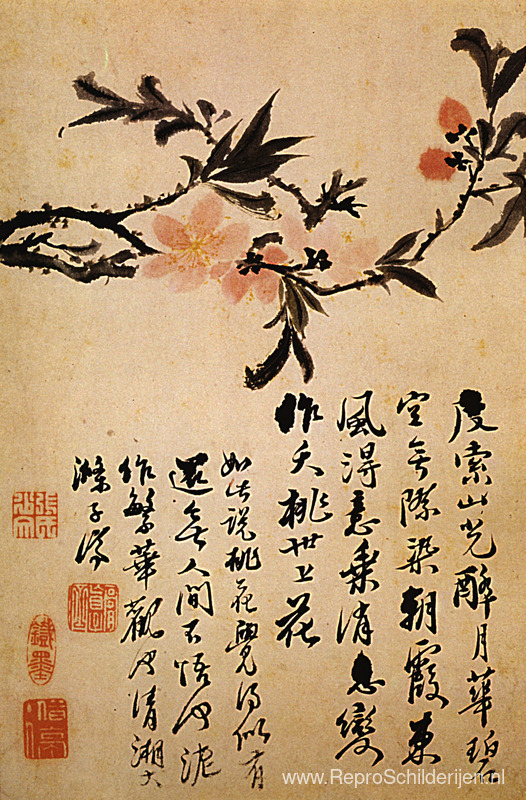 度索山光醉月華碧
空無際染朝霞東
風得意乘消息變
作夭桃世上花
如此說桃花覺得似有
還無人間不悟何泥
作繁華觀也清湘大
滌子濟
www.ReproSchilderijen.nl